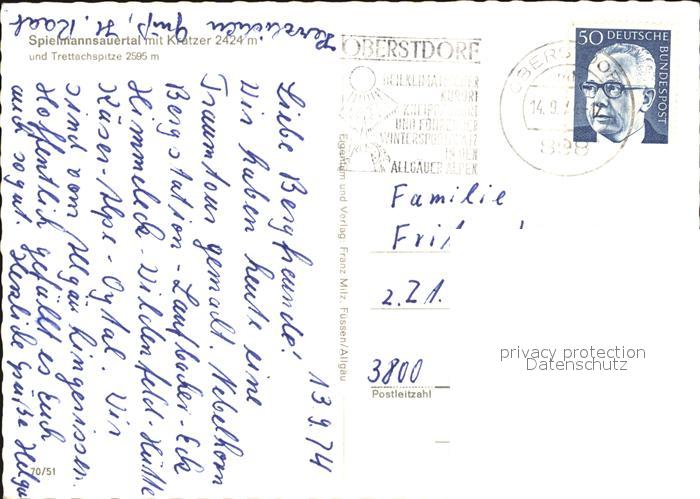 Spielmannsauertal mit Kratzer 2424 m
und Trettachspitze 2595 m
Herzlichen Gruß, H.
13.9.74
Liebe Bergfreunde!
Wir haben heute eine
Traumtour gemacht. Nebelhorn
Bergstation - Laufbacher-Eck
Himmeleck - Wildenfeld-Hütte
Käser-Alpe - Oytal. Wir
sind vom Allgäu hingerissen.
Hoffentlich gefällt es Euch
auch so gut. Herzliche Grüße Helga
70/51
Eigentum und Verlag Franz Milz, Füssen/Allgäu
OBERSTDORF
HEILKLIMATISCHER
KURORT
KNEIPP
UND FÜHRENDER
WINTERSPORTPLATZ
IN DEN
ALLGÄUER ALPEN
OBERSTDORF
14.9.
898
50 DEUTSCHE
BUNDESPOST
Familie
z.Zt.
3800
Postleitzahl
privacy protection
Datenschutz